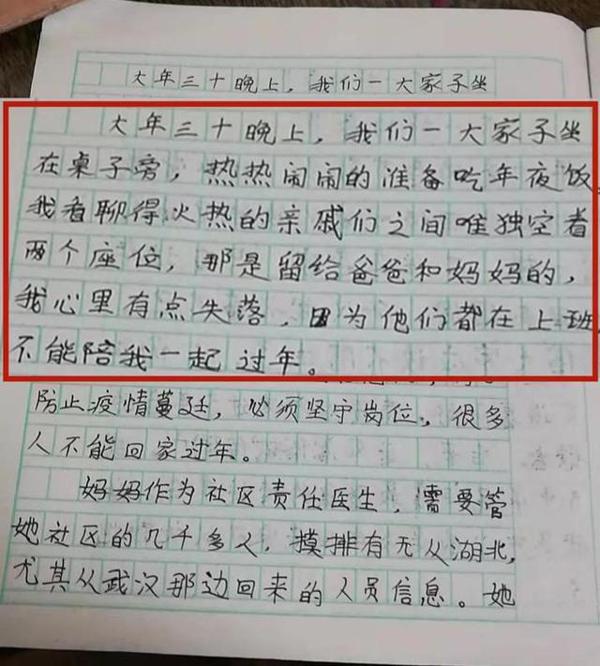 大年三十晚上，我们一大家子坐
大年三十晚上，我们一大家子坐
在桌子旁，热热闹闹的准备吃年夜饭，
我看聊得火热的亲戚们之间唯独空着
两个座位，那是留给爸爸和妈妈的，
我心里有点失落，因为他们都在上班，
不能陪我一起过年。
防止疫情蔓廷，必须坚守岗位，很多
人不能回家过年。
妈妈作为社区责任医生，需要管
她社区的几千多人，摸排有无从湖北，
尤其从武汉那边回来的人员信息。她